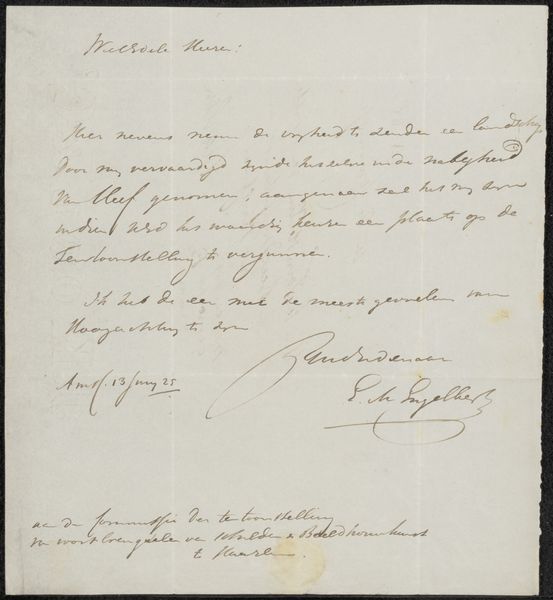 WelEdele Heeren:
Hier nevens neem de vryheid te zenden een landschap
door my vervaardigd zynde hetzelve in de nabyheid
van Cleef genomen; aangenaam zal het my zyn
indien UEd het waardig keuren een plaats op de
Tentoonstelling te vergunnen.
Ik heb de eer met de meeste gevoelens van
Hoogachting te zyn
UwEdDienaar
Amst. 13 Juny 25
E. M Engelberts
aan de Commissie der tentoonstelling
van voortbrengselen van Schilder en Beeldhouwkunst
te Haarlem.